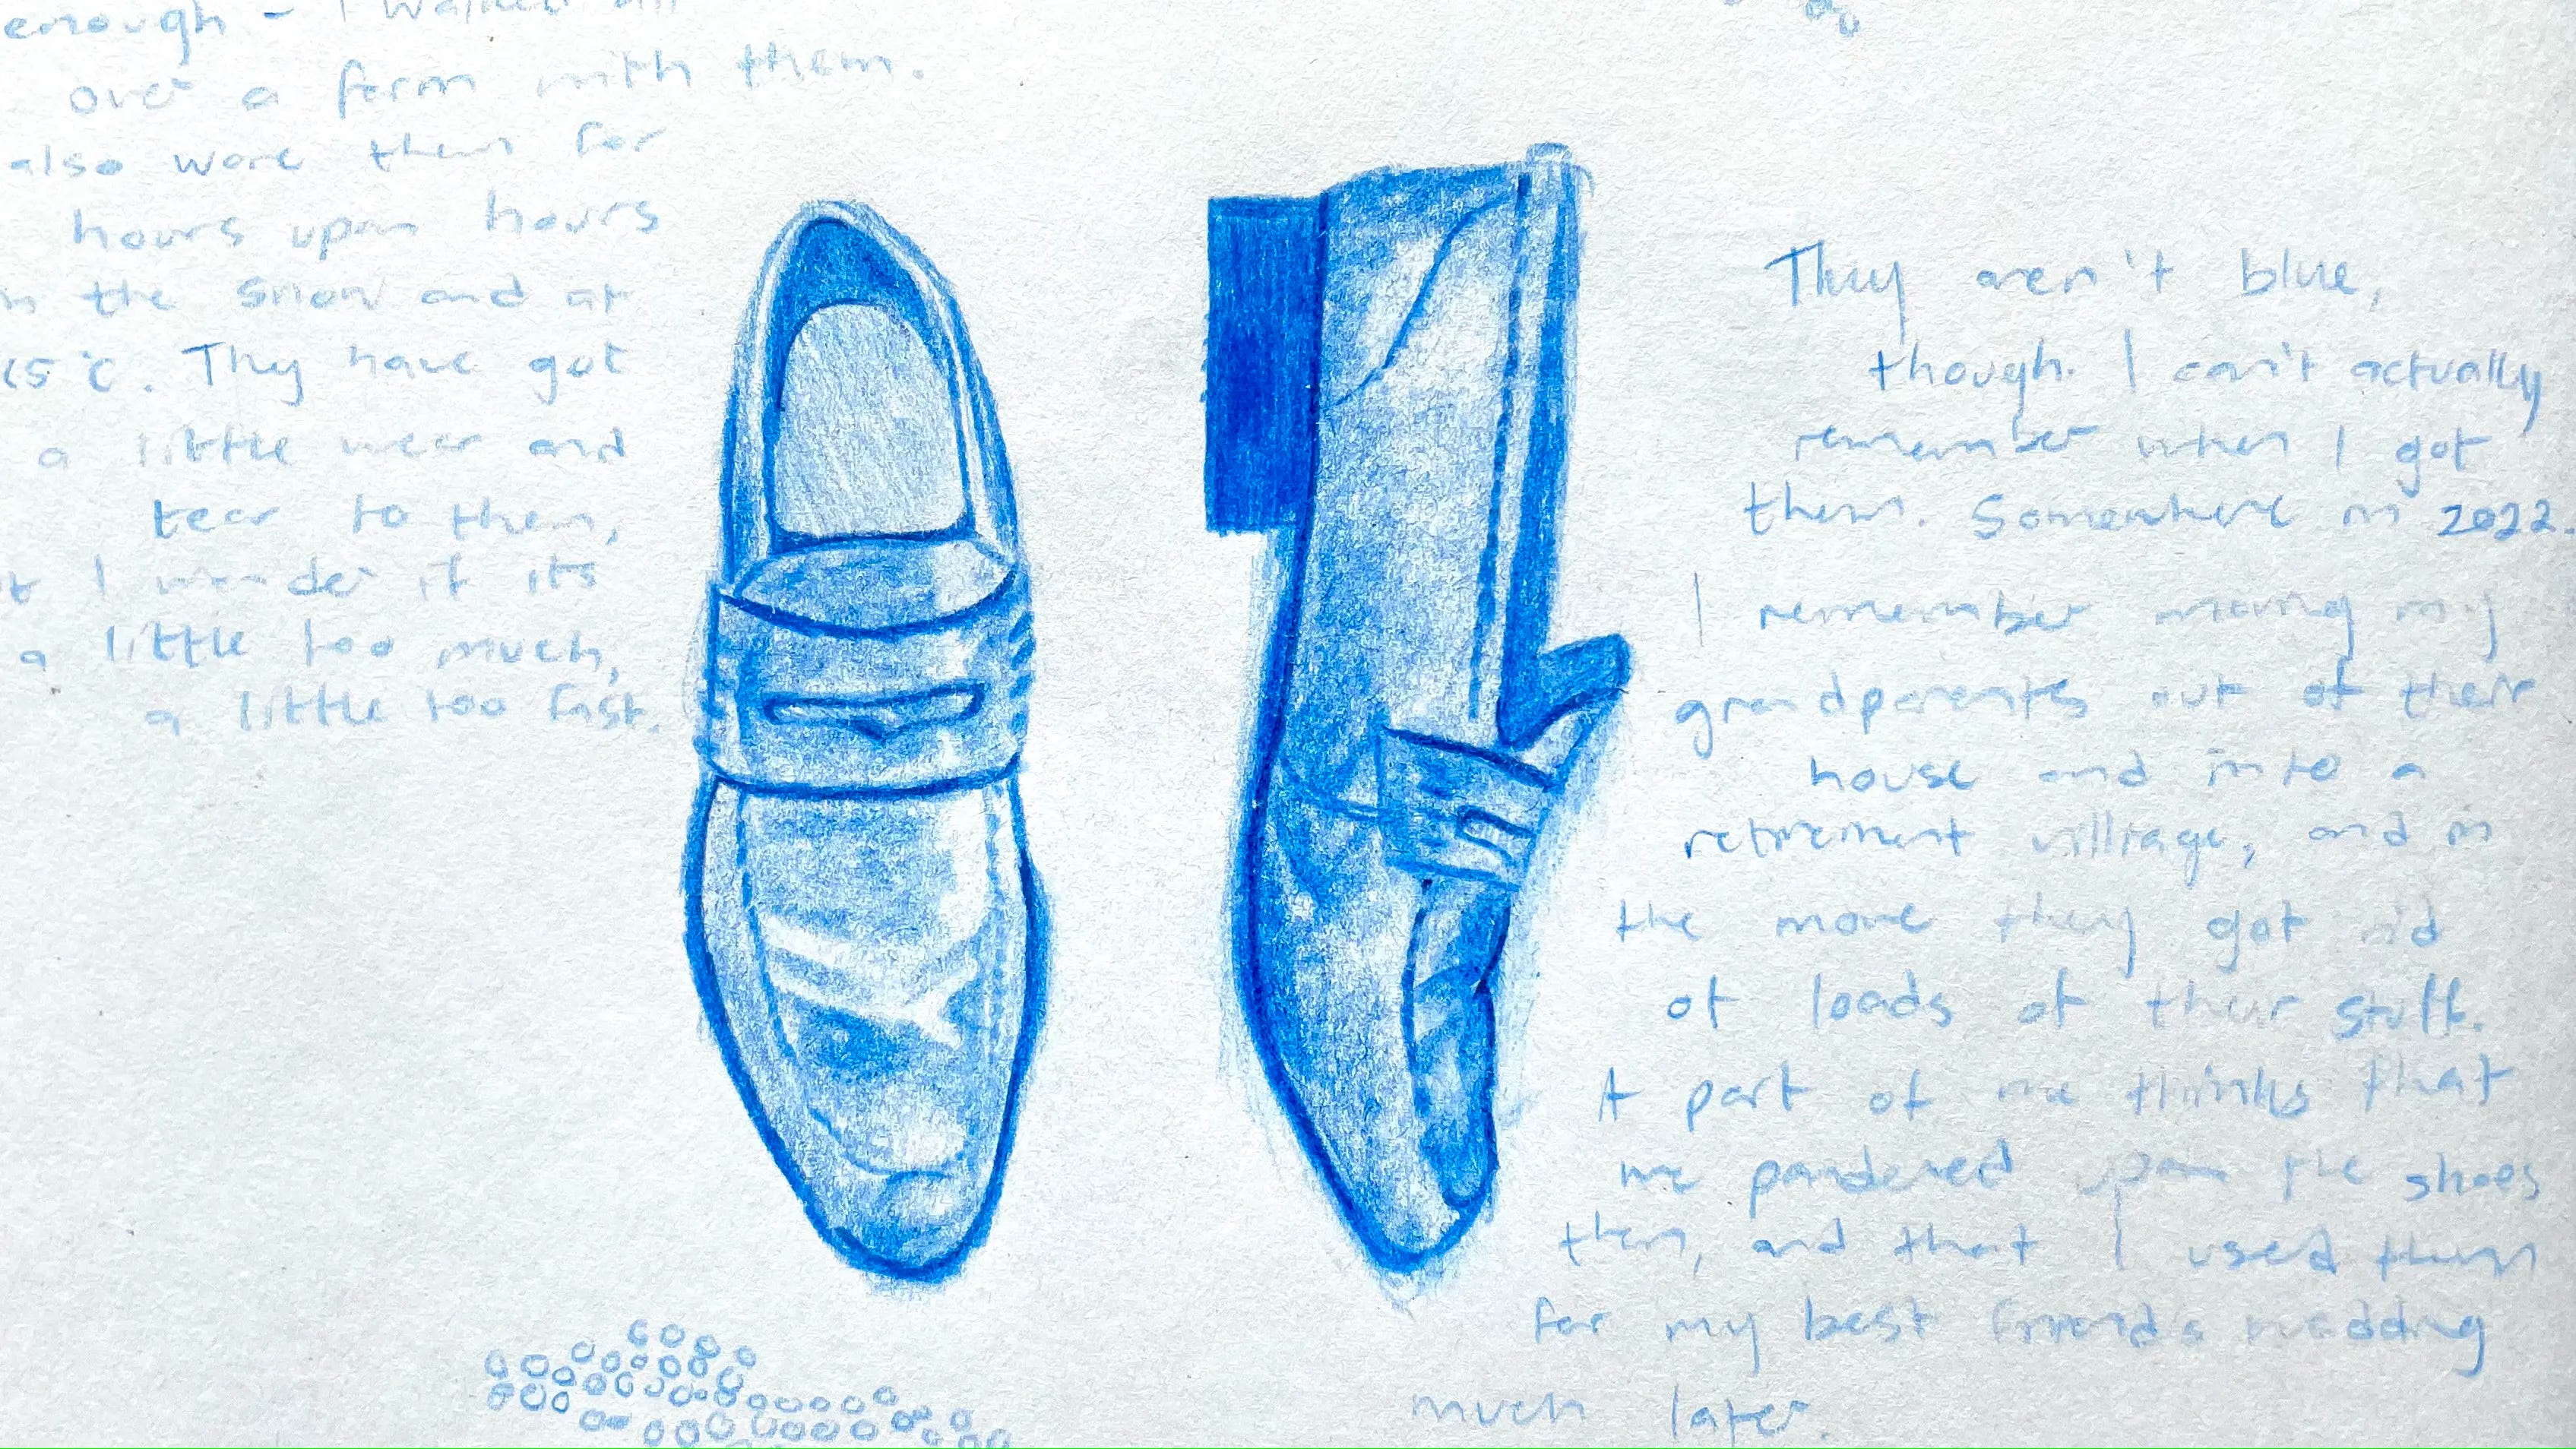 enough - I walked all
over a farm with them.
also wore them for
hours upon hours
in the snow and at
15°C. They have got
a little wear and
tear to them,
I wonder if its
a little too much,
a little too fast.
They aren't blue,
though. I can't actually
remember when I got
them. Somewhere in 2022.
I remember moving my
grandparents out of their
house and into a
retirement villiage, and in
the move they got rid
of loads of their stuff.
A part of me thinks that
we pondered upon the shoes
then, and that I used them
for my best friend's wedding
much later.